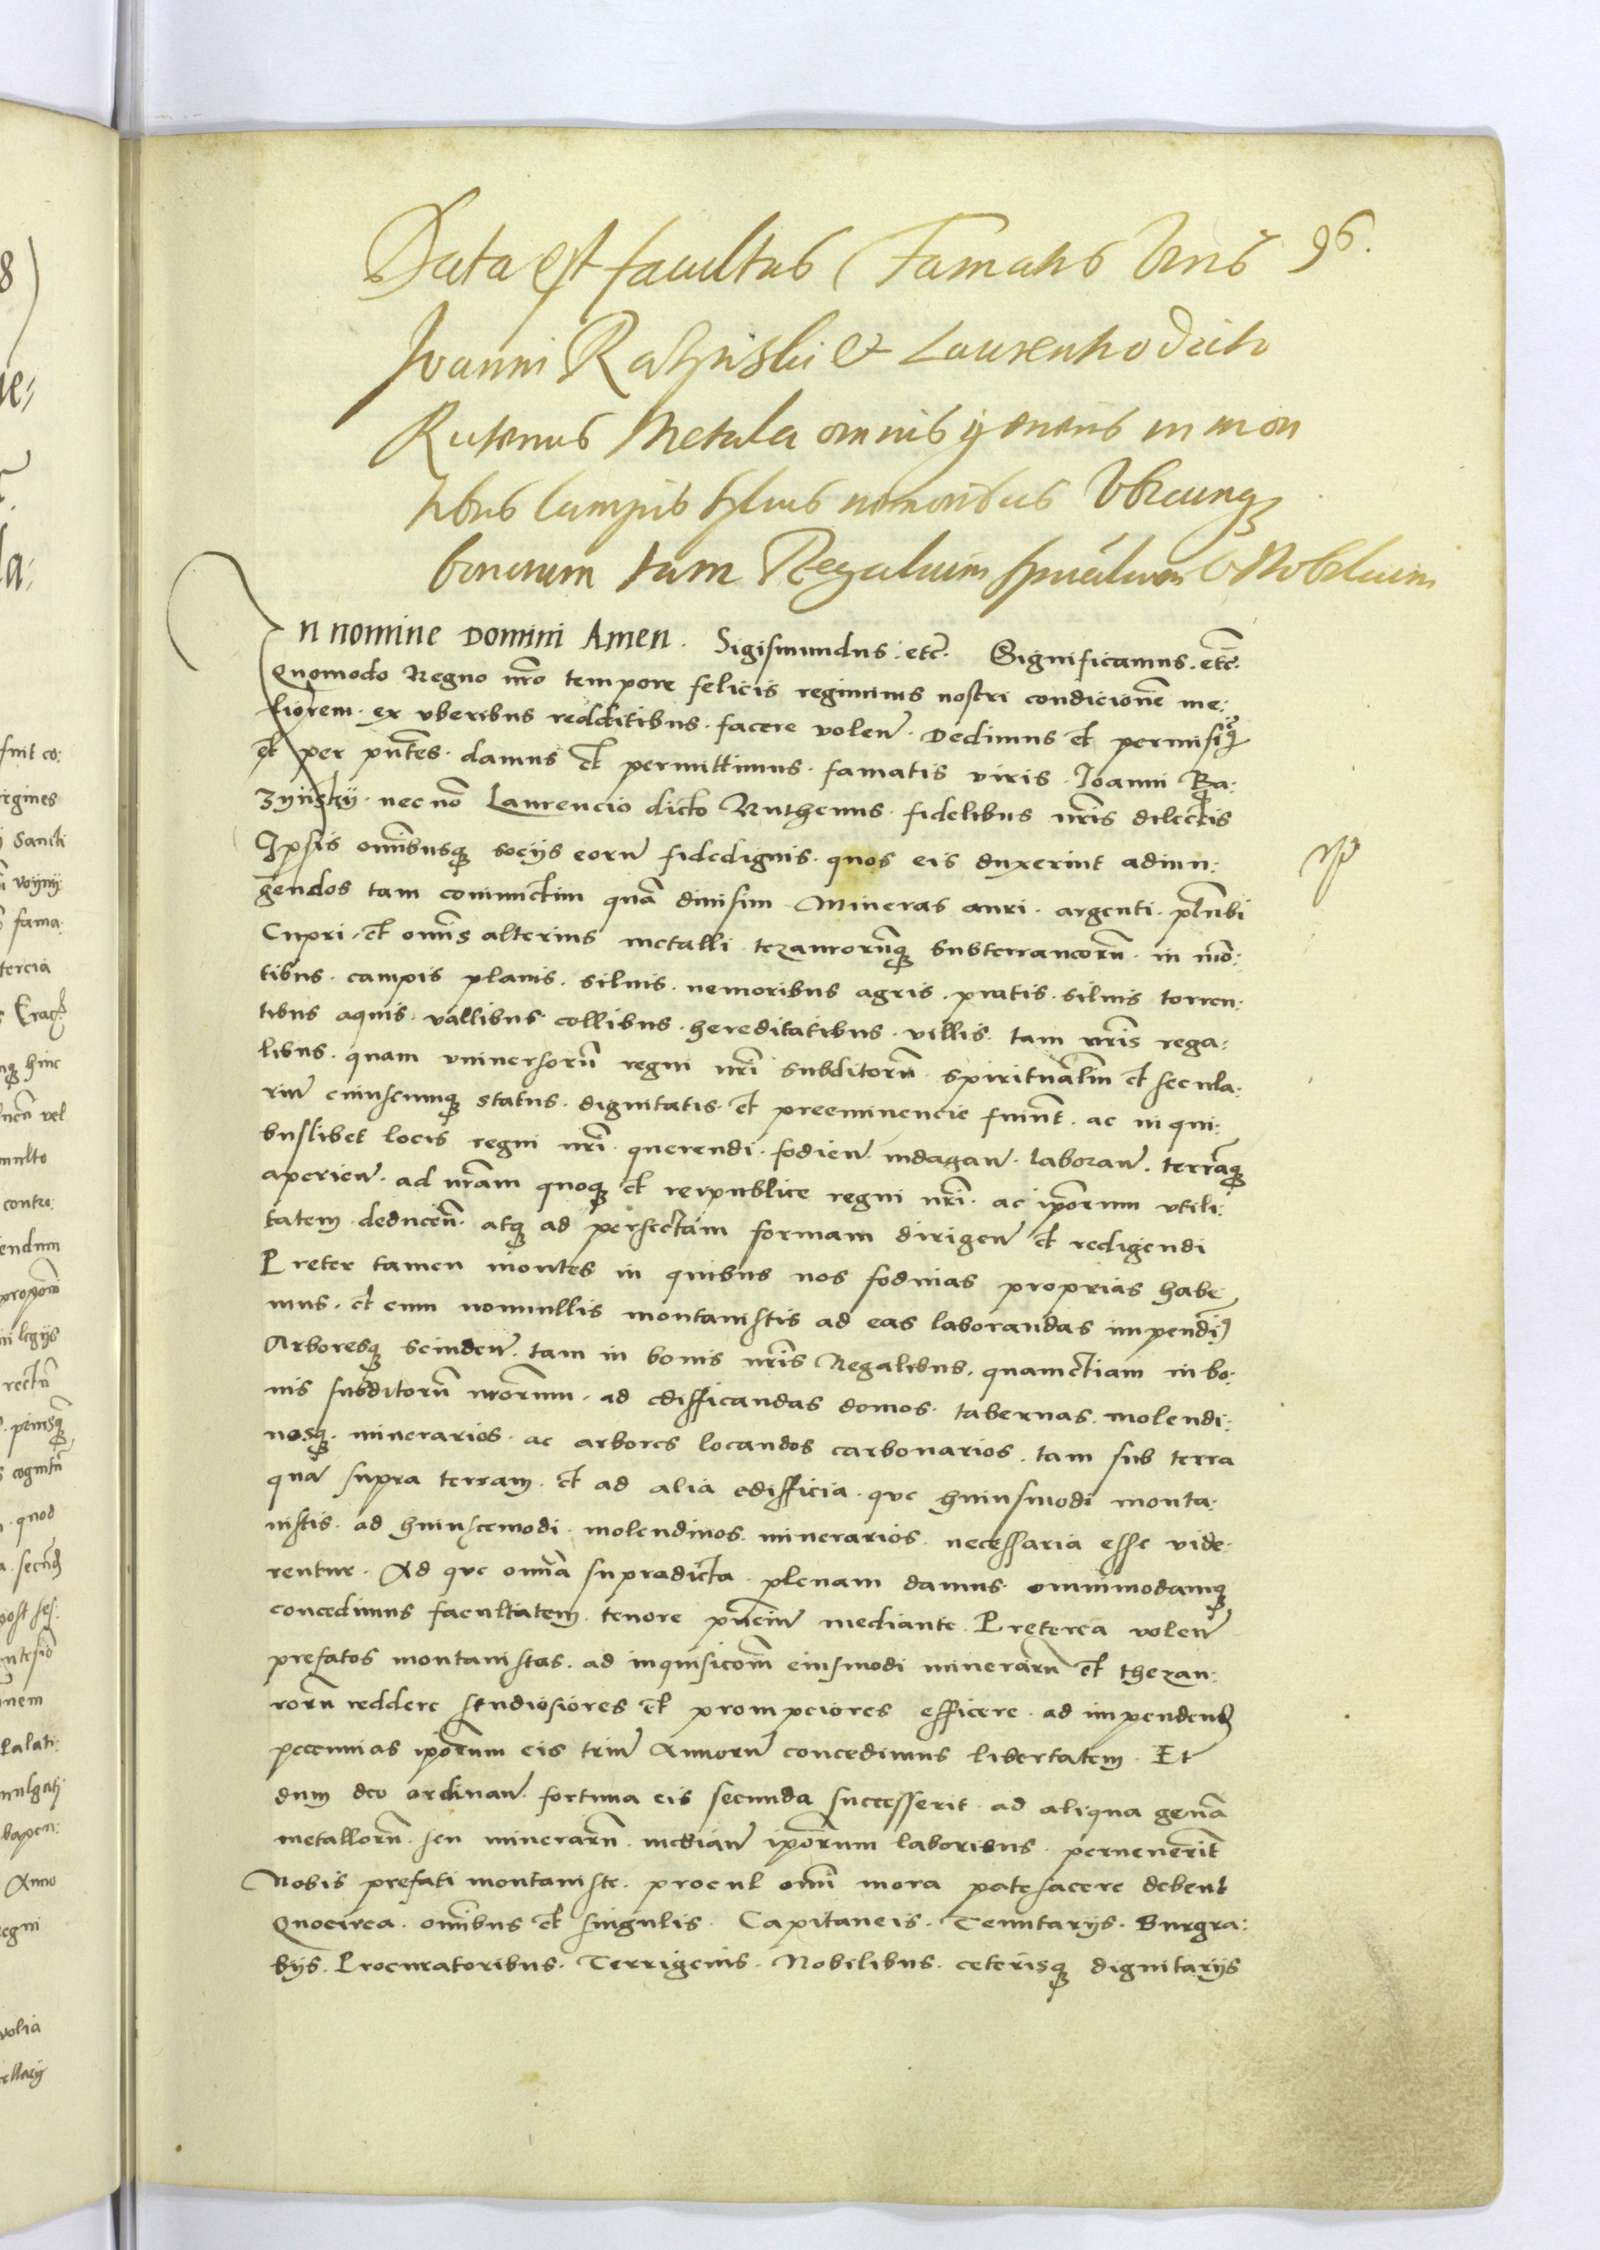 96.
Data est facultas Famatis Viris
Joanni Razinski & Laurentio dicto
Rutenus Metala omnis generis in mon
tibus campis siluis nemoribus Vbicunq
bonorum tam Regalium sp̃ualium & Nobilium
In nomine Domini Amen. Sigismundus. etc̃. Significamus. etc̃.
Quomodo Regno nr̃o tempore felicis regiminis nostri condicionẽ me:
liorem. ex vberibus redditibus. facere volen̄. Dedimus et permisi
et per pn̄tes. damus et permittimus. famatis viris. Joanni Ra:
zynsky. nec nõ Laurencio dicto Ruthenus. fidelibus nr̃is dilectis
Ipsis omĩbusq socijs eorũ fidedignis. quos eis duxerint adiun:
gendos tam coniunctim quã diuisim Mineras auri. argenti. plũbi
Cupri. et omĩs alterius metalli tezaurorũq subterraneorũ. in mõ:
tibus. campis planis. siluis. nemoribus agris. pratis. siluis torren:
tibus aquis. vallibus collibus. hereditatibus. villis. tam nr̃is rega:
libus. quam vniuersorũ regni nr̃i subditorũ spiritualiũ et secula:
riũ cuiuscumq status. dignitatis. et preeminencie fuerĩt. ac in qui:
buslibet locis regni nr̃i. querendi. fodien̄. indagan̄. laboran̄. terrãq
aperien̄. ad nr̃am quoq et reipublice regni nr̃i. ac ip̃orum vtili:
tatem. deducen̄. atq ad perfectam formam dirigen̄ et redigendi
Preter tamen montes in quibus nos fodinas proprias habe
mus. et cum nonnullis montanistis ad eas laborandas impendi
Arboresq scinden̄. tam in bonis nr̃is Regalibus. quametiam in bo:
nis subditorũ nr̃orum. ad edifficandas domos. tabernas. molendi:
nosq. minerarios. ac arbores locandos carbonarios. tam sub terra
quã supra terram. et ad alia edifficia. que huiusmodi monta:
nistis. ad huiuscemodi. molendinos. minerarios. necessaria esse vide:
rentur. Ad que om̃ia supradicta. plenam damus. omnimodamq
concedimus facultatem. tenore pn̄ciũ mediante. Preterea volen̄
prefatos montanistas. ad inquisicoẽm eiusmodi minerarũ et thezau:
rorũ reddere studiosiores et prompciores efficere. ad impenden̄
peccunias ip̃orum eis triũ Annorũ concedimus libertatem. Et
dum deo ordinan̄. fortuna eis secunda successerit. ad aliqua genẽa
metallorũ. seu minerarũ. median̄ ip̃orum laboribus. peruenerĩt
Nobis prefati montaniste. procul om̃i mora patefacere debent
Quocirca. omĩbus et singulis. Capitaneis. Tenutarijs. Burgra:
bijs. Procuratoribus. Terrigenis. Nobilibus. ceterisq dignitarijs